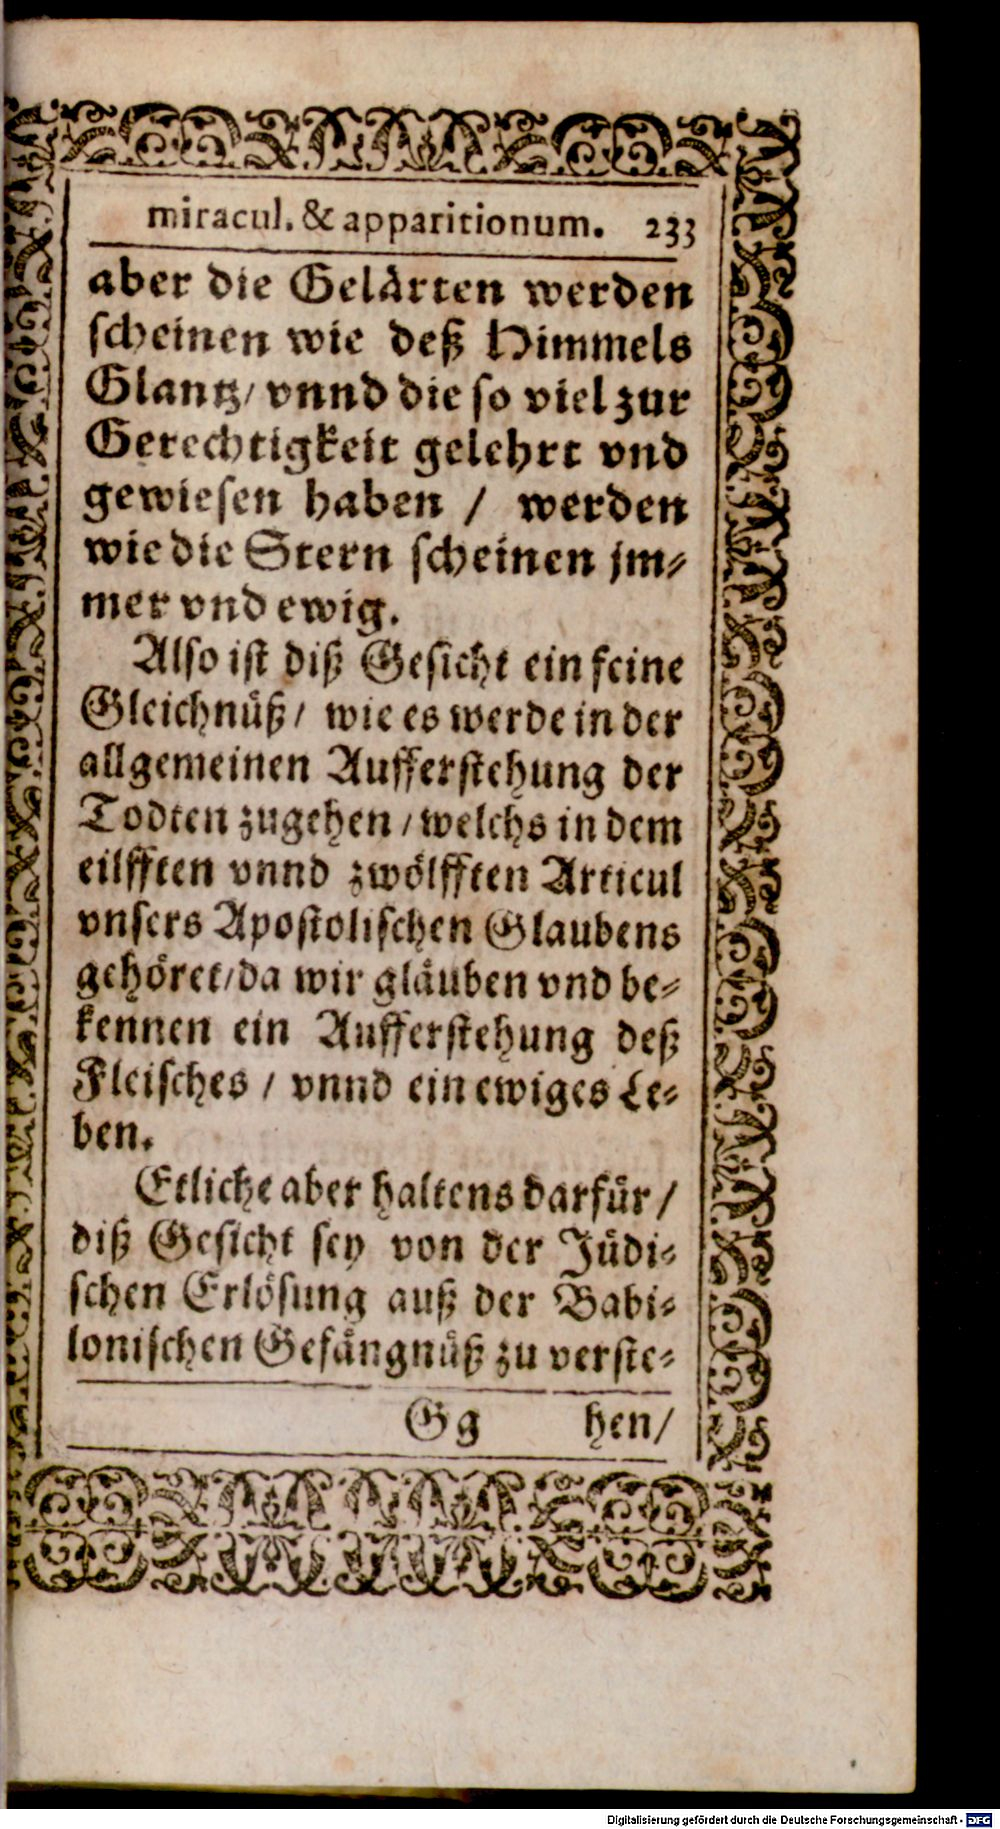 miracul. & apparitionum. 233
aber die Gelårten werden
scheinen wie deß Himmels
Glantz/ vnnd die so viel zur
Gerechtigkeit gelehrt vnd
gewiesen haben / werden
wie die Stern scheinen jm⸗
mer vnd ewig.
Also ist diß Gesicht ein feine
Gleichnůß/ wie es werde in der
allgemeinen Aufferstehung der
Todten zugehen / welchs in dem
eilfften vnnd zwölfften Articul
vnsers Apostolischen Glaubens
gehöret/ da wir gläuben vnd be⸗
kennen ein Aufferstehung deß
Fleisches / vnnd ein ewiges Le⸗
ben.
Etliche aber haltens darfür /
diß Gesicht sey von der Jüdi⸗
schen Erlösung auß der Babi⸗
lonischen Gefängnüß zu verste⸗
Gg hen/
Digitalisierung gefördert durch die Deutsche Forschungsgemeinschaft - DFG